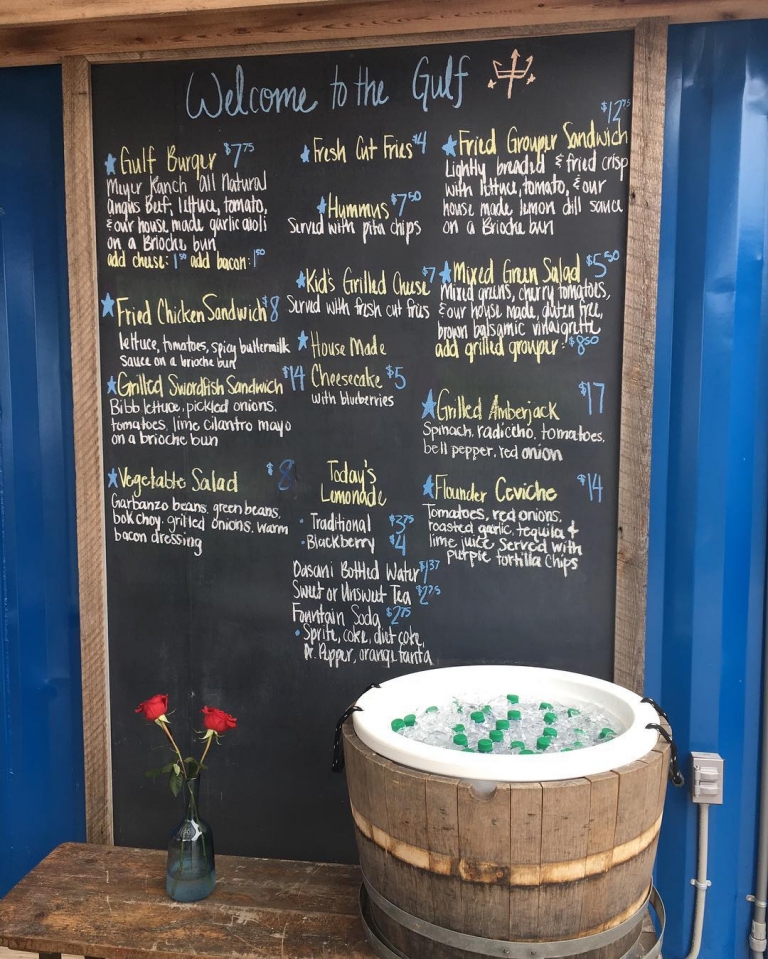 Welcome to the Gulf
Gulf Burger $7.75
Meyer Ranch All Natural
Angus Beef, lettuce, tomato,
& our house made garlic aioli
on a Brioche bun
add cheese: 1.50 add bacon: 1.50
Fried Chicken Sandwich $8
lettuce, tomatoes, spicy buttermilk
sauce on a brioche bun
Grilled Swordfish Sandwich $14
Bibb lettuce, pickled onions,
tomatoes, lime cilantro mayo
on a brioche bun
Vegetable Salad $8
Garbanzo beans, green beans,
bok choy, grilled onions, warm
bacon dressing
Fresh Cut Fries $4
Hummus $7.50
Served with pita chips
Kid's Grilled Cheese $7
Served with fresh cut fries
House Made
Cheesecake $5
with blueberries
Today's
Lemonade
• Traditional $3.75
• Blackberry $4
Dasani Bottled Water $1.37
Sweet or Unsweet Tea $2.75
Fountain Soda $2.75
• Sprite, coke, diet coke,
Dr. Pepper, orange fanta
$12.75
Fried Grouper Sandwich
Lightly breaded & fried crisp
with lettuce, tomato, & our
house made lemon dill sauce
on a Brioche bun
Mixed Green Salad $5.50
Mixed greens, cherry tomatoes,
& our house made, gluten free,
brown balsamic vinaigrette
add grilled grouper: $8.50
Grilled Amberjack $17
Spinach, radicchio, tomatoes,
bell pepper, red onion
Flounder Ceviche $14
Tomatoes, red onions,
roasted garlic, tequila &
lime juice served with
purple tortilla chips